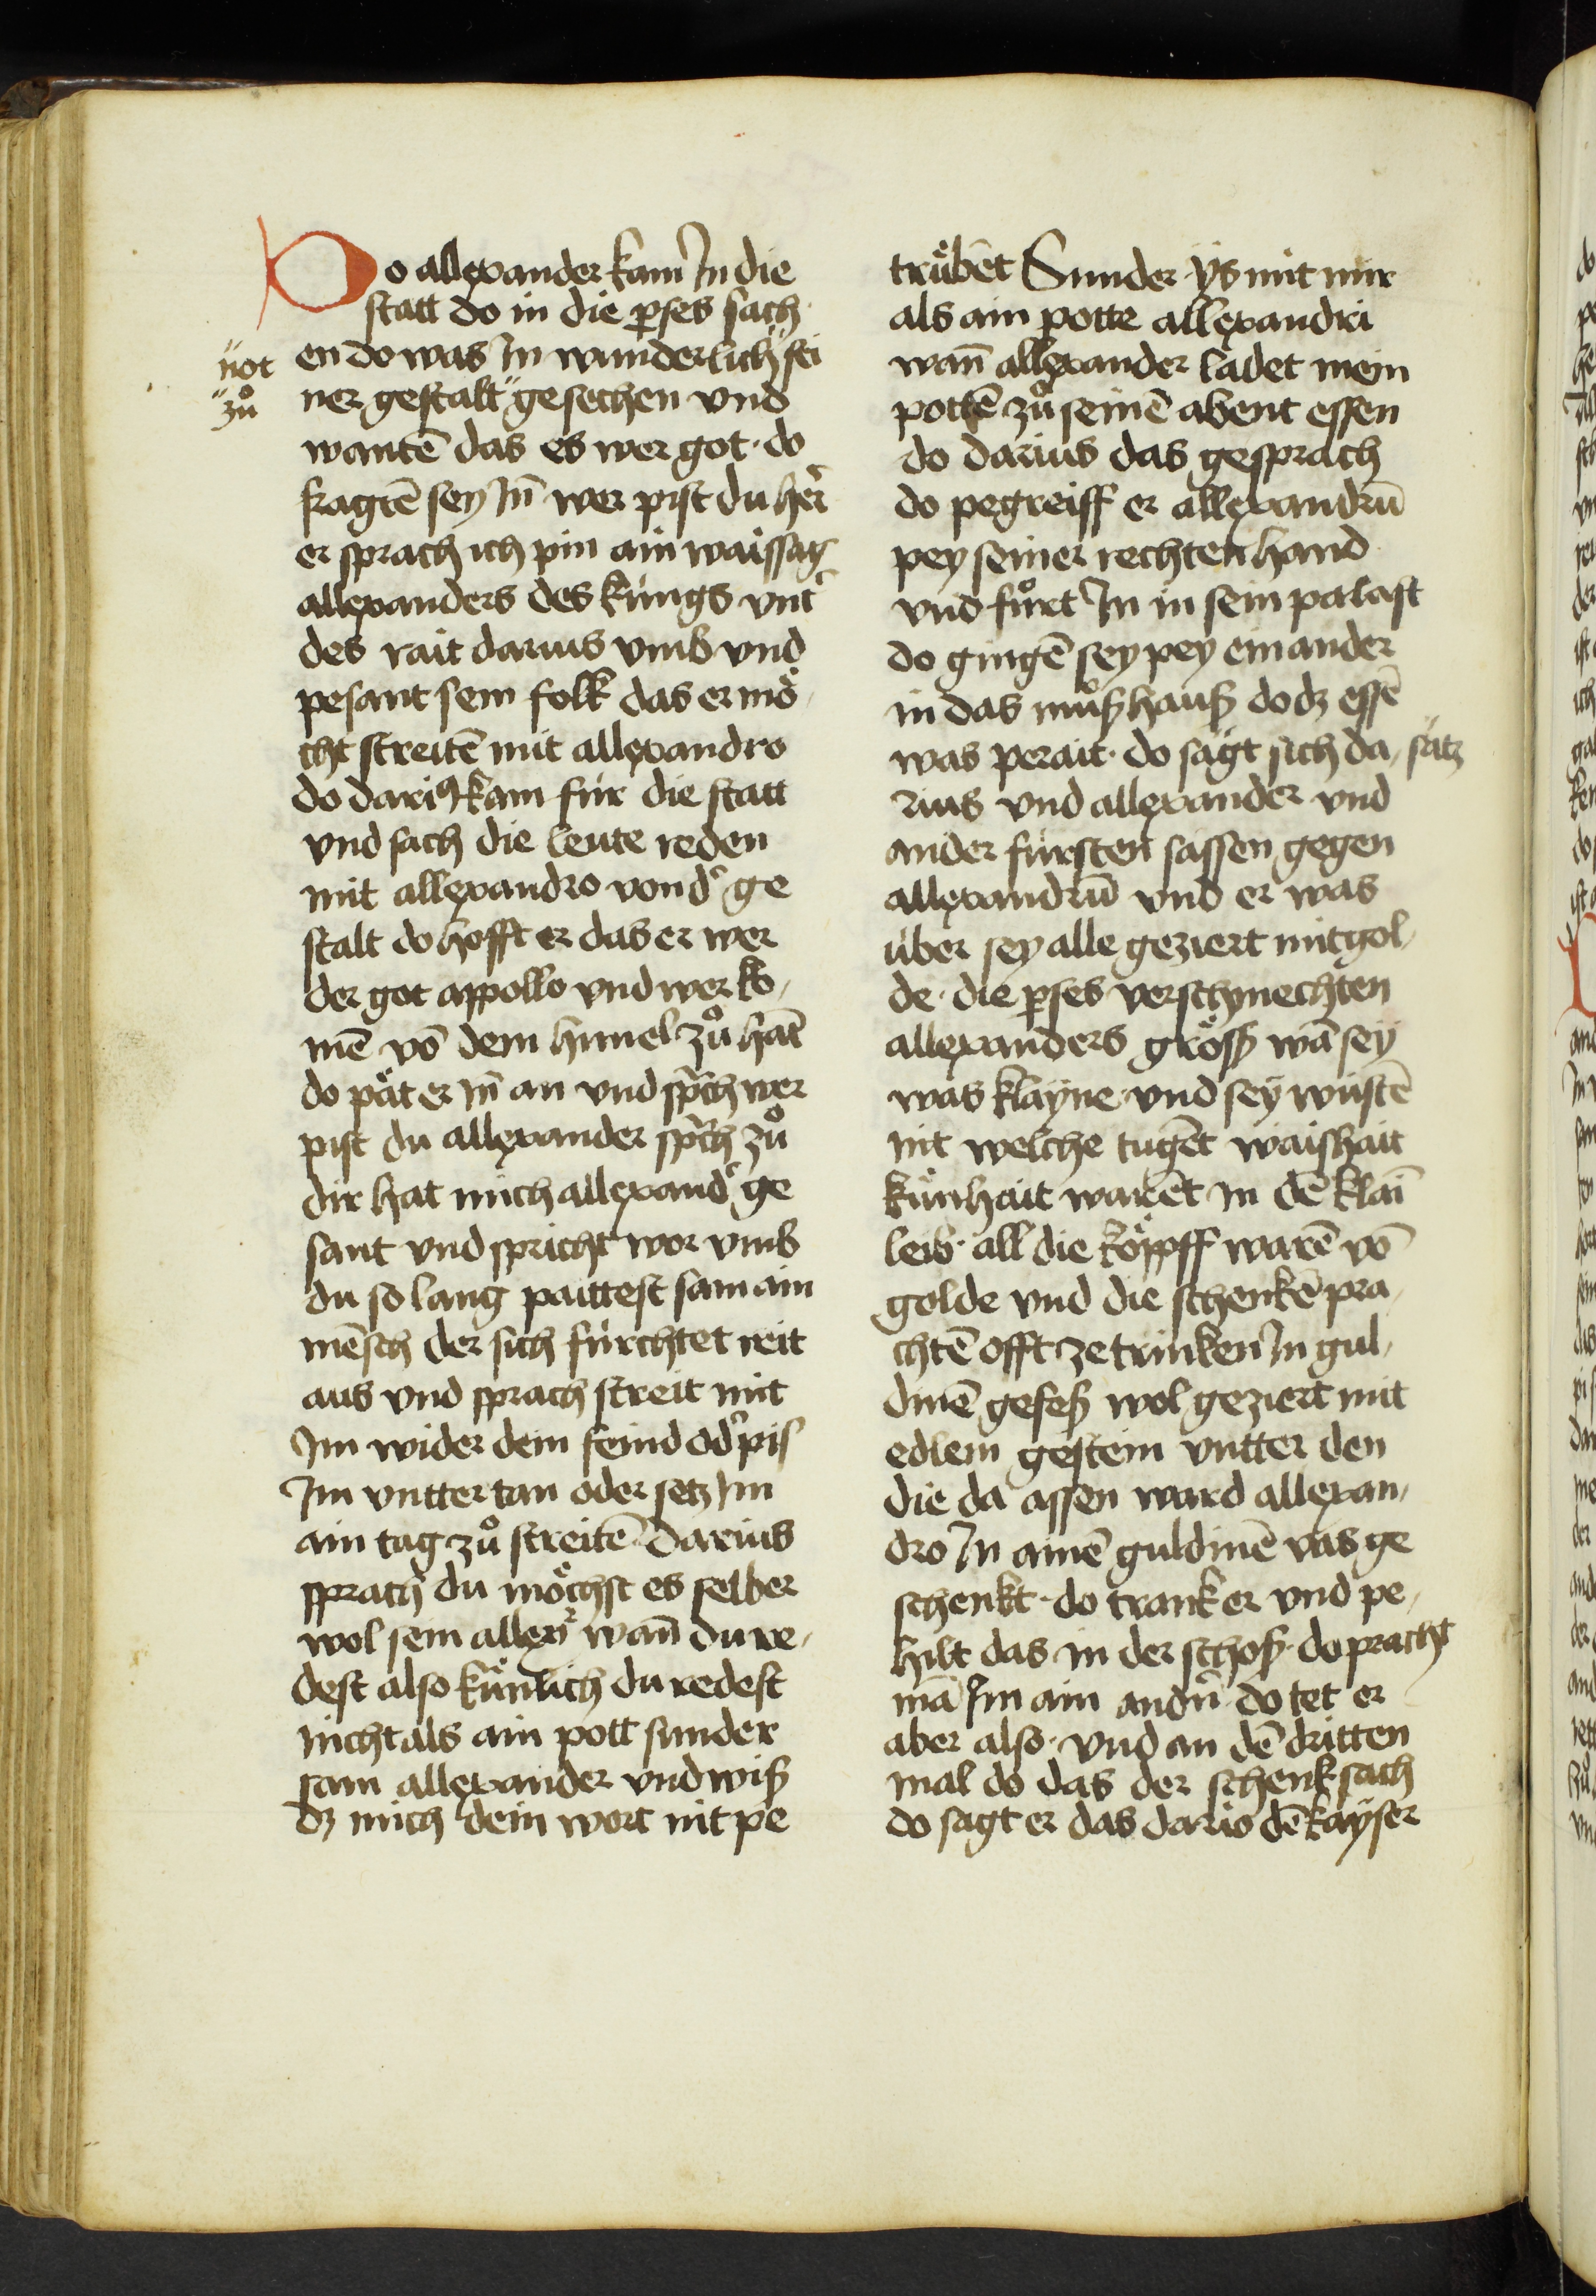 Do allexander kam In die
statt do in die p̲ses sach
en do was In wunderlich" sei
ner gestalt" gesechen vnd
"not
"zů
wantē das es wer got · do
fragtē sey In̄ wer pist du her̄
er sprach ich pin ain waissag
allexanders des kúngs vnt̾
des rait darius vmb vnd
pesant sein folk das er mö
cht streitē mit allexandro
do dariꝰ kam fúr die statt
vnd sach die leute reden
mit allexandro von d̾ ge
stalt do hofft er das er wer
der got appollo vnd wer ko
mē vō dem himel zů hāt
do pät er In̄ an vnd sp̄ch wer
pist du allexander sp̄ch zů
dir hat mich allexand̾ ge
sant vnd spricht wor vmb
du so lang paittest sam ain
mēsch der sich fúrchtet reit
aus vnd sprach streit mit
Im wider dein feind od̾ pis
Im vntter tan oder setz Im
ain tag zů streitē Darius
sprach du möchst es selber
wol sein allexr̄ wan̄ du re
dest also kůnlich du redest
nicht als ain pott sunder
sam allexander vnd wiß
dz mich dein wort nit pe
trůbēt Sunder ÿs mit mir
als ain potte allexandri
wan̄ allexander ladet mein
pottē zů seinē abent essen
do darius das gesprach
do pegreiff er allexandrū
pey seiner rechten hand
vnd fůrt In in sein palast
do gingē sey pey ein ander
in das můßhauß do dz essē
was perait · do sagt sich da satz
rius vnd allexander vnd
ander fúrsten sassen gegen
allexandrū vnd er was
úber sey alle geziert mit gol
de · die p̲ses verschmechten
allexanders größ wā sey
was klayne · vnd sey wustē
nit welche tugēt waishait
kůnhait warēt in dē klaī
leib · all die köpff warē vō
golde vnd die schenkē pra
chtē offt ze trinken In gul
dinē gefeß wol geziert mit
edlem gestein vntter den
die da assen ward allexan
dro In ainē guldinē vas ge
schenkt · do trank er vnd pe
hilt das in der schoß · do pracht
mā Im ain and̾n̄ · do tet er
aber also · vnd an dē dritten
mal do das der schenk sach
do sagt er das dario dē kayser